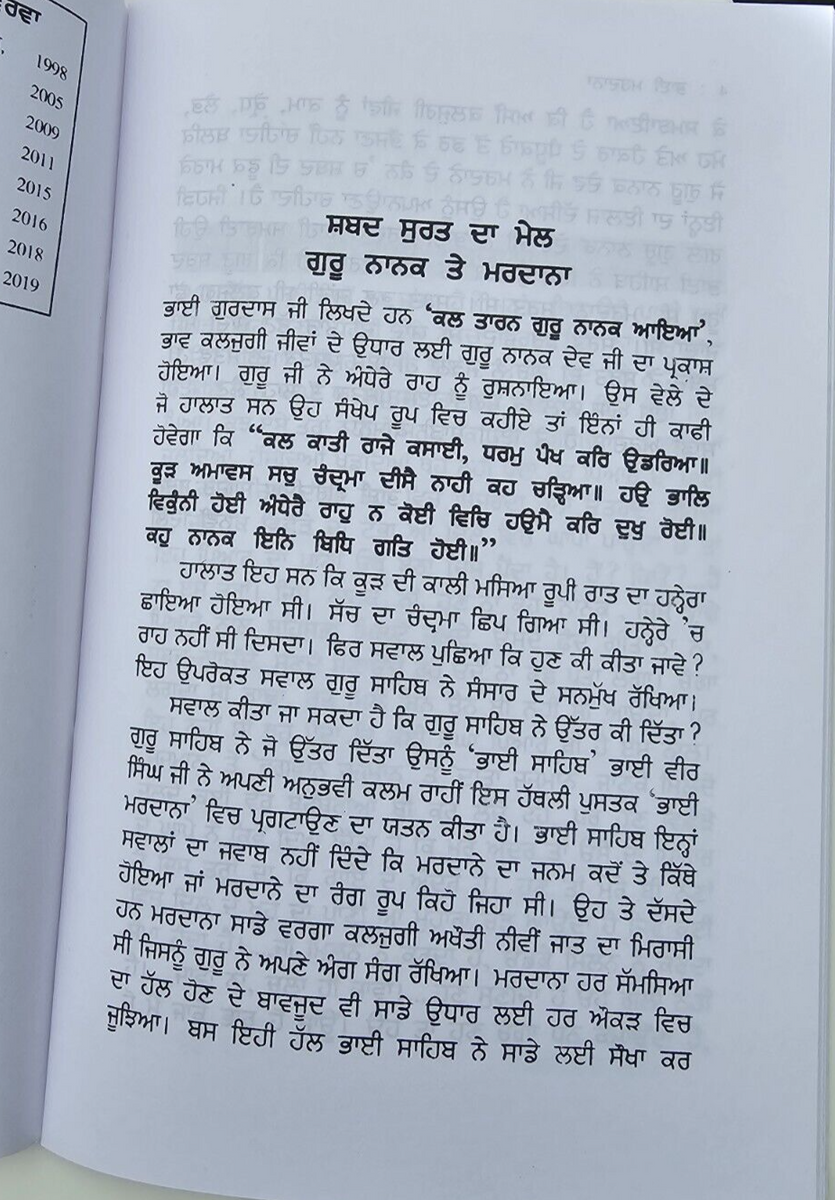 ਰਵਾ
1998
2005
2009
2011
2015
2016
2018
2019
ਸ਼ਬਦ ਸੁਰਤ ਦਾ ਮੇਲ
ਗੁਰੂ ਨਾਨਕ ਤੇ ਮਰਦਾਨਾ
ਭਾਈ ਗੁਰਦਾਸ ਜੀ ਲਿਖਦੇ ਹਨ ‘ਕਲ ਤਾਰਨ ਗੁਰੂ ਨਾਨਕ ਆਇਆ’,
ਭਾਵ ਕਲਜੁਗੀ ਜੀਵਾਂ ਦੇ ਉਧਾਰ ਲਈ ਗੁਰੂ ਨਾਨਕ ਦੇਵ ਜੀ ਦਾ ਪ੍ਰਕਾਸ਼
ਹੋਇਆ। ਗੁਰੂ ਜੀ ਨੇ ਅੰਧੇਰੇ ਰਾਹ ਨੂੰ ਰੁਸ਼ਨਾਇਆ। ਉਸ ਵੇਲੇ ਦੇ
ਜੋ ਹਾਲਾਤ ਸਨ ਉਹ ਸੰਖੇਪ ਰੂਪ ਵਿਚ ਕਹੀਏ ਤਾਂ ਇੰਨਾਂ ਹੀ ਕਾਫੀ
ਹੋਵੇਗਾ ਕਿ “ਕਲ ਕਾਤੀ ਰਾਜੇ ਕਸਾਈ, ਧਰਮੁ ਪੰਖ ਕਰਿ ਉਡਰਿਆ॥
ਕੂੜ ਅਮਾਵਸ ਸਚੁ ਚੰਦ੍ਰਮਾ ਦੀਸੈ ਨਾਹੀ ਕਹ ਚੜ੍ਹਿਆ॥ ਹਉ ਭਾਲਿ
ਵਿਕੁੰਨੀ ਹੋਈ ਅੰਧੇਰੈ ਰਾਹੁ ਨ ਕੋਈ ਵਿਚਿ ਹਉਮੈ ਕਰਿ ਦੁਖੁ ਰੋਈ॥
ਕਹੁ ਨਾਨਕ ਇਨਿ ਬਿਧਿ ਗਤਿ ਹੋਈ॥”
ਹਾਲਾਤ ਇਹ ਸਨ ਕਿ ਕੂੜ ਦੀ ਕਾਲੀ ਮਸਿਆ ਰੂਪੀ ਰਾਤ ਦਾ ਹਨ੍ਹੇਰਾ
ਛਾਇਆ ਹੋਇਆ ਸੀ। ਸੱਚ ਦਾ ਚੰਦ੍ਰਮਾ ਛਿਪ ਗਿਆ ਸੀ। ਹਨ੍ਹੇਰੇ ’ਚ
ਰਾਹ ਨਹੀਂ ਸੀ ਦਿਸਦਾ। ਫਿਰ ਸਵਾਲ ਪੁਛਿਆ ਕਿ ਹੁਣ ਕੀ ਕੀਤਾ ਜਾਵੇ ?
ਇਹ ਉਪਰੋਕਤ ਸਵਾਲ ਗੁਰੂ ਸਾਹਿਬ ਨੇ ਸੰਸਾਰ ਦੇ ਸਨਮੁੱਖ ਰੱਖਿਆ।
ਸਵਾਲ ਕੀਤਾ ਜਾ ਸਕਦਾ ਹੈ ਕਿ ਗੁਰੂ ਸਾਹਿਬ ਨੇ ਉੱਤਰ ਕੀ ਦਿੱਤਾ ?
ਗੁਰੂ ਸਾਹਿਬ ਨੇ ਜੋ ਉੱਤਰ ਦਿੱਤਾ ਉਸਨੂੰ ‘ਭਾਈ ਸਾਹਿਬ’ ਭਾਈ ਵੀਰ
ਸਿੰਘ ਜੀ ਨੇ ਅਪਣੀ ਅਨੁਭਵੀ ਕਲਮ ਰਾਹੀਂ ਇਸ ਹੱਥਲੀ ਪੁਸਤਕ ‘ਭਾਈ
ਮਰਦਾਨਾ’ ਵਿਚ ਪ੍ਰਗਟਾਉਣ ਦਾ ਯਤਨ ਕੀਤਾ ਹੈ। ਭਾਈ ਸਾਹਿਬ ਇਨ੍ਹਾਂ
ਸਵਾਲਾਂ ਦਾ ਜਵਾਬ ਨਹੀਂ ਦਿੰਦੇ ਕਿ ਮਰਦਾਨੇ ਦਾ ਜਨਮ ਕਦੋਂ ਤੇ ਕਿੱਥੇ
ਹੋਇਆ ਜਾਂ ਮਰਦਾਨੇ ਦਾ ਰੰਗ ਰੂਪ ਕਿਹੋ ਜਿਹਾ ਸੀ। ਉਹ ਤੇ ਦੱਸਦੇ
ਹਨ ਮਰਦਾਨਾ ਸਾਡੇ ਵਰਗਾ ਕਲਜੁਗੀ ਅਖੌਤੀ ਨੀਵੀਂ ਜਾਤ ਦਾ ਮਿਰਾਸੀ
ਸੀ ਜਿਸਨੂੰ ਗੁਰੂ ਨੇ ਅਪਣੇ ਅੰਗ ਸੰਗ ਰੱਖਿਆ। ਮਰਦਾਨਾ ਹਰ ਸੱਮਸਿਆ
ਦਾ ਹੱਲ ਹੋਣ ਦੇ ਬਾਵਜੂਦ ਵੀ ਸਾਡੇ ਉਧਾਰ ਲਈ ਹਰ ਔਕੜ ਵਿਚ
ਜੂਝਿਆ। ਬਸ ਇਹੀ ਹੱਲ ਭਾਈ ਸਾਹਿਬ ਨੇ ਸਾਡੇ ਲਈ ਸੌਖਾ ਕਰ